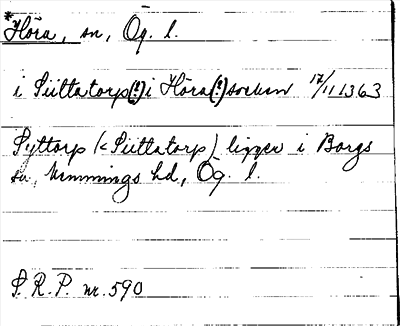 *Höra, sn, Ög. l.
i Siittatorp(!) i Höra(!) socken 17/11 1363
Syttorp (< Siittatorp) ligger i Borgs
sn, Memmings hd, Ög. l.
S. R. P. nr. 590